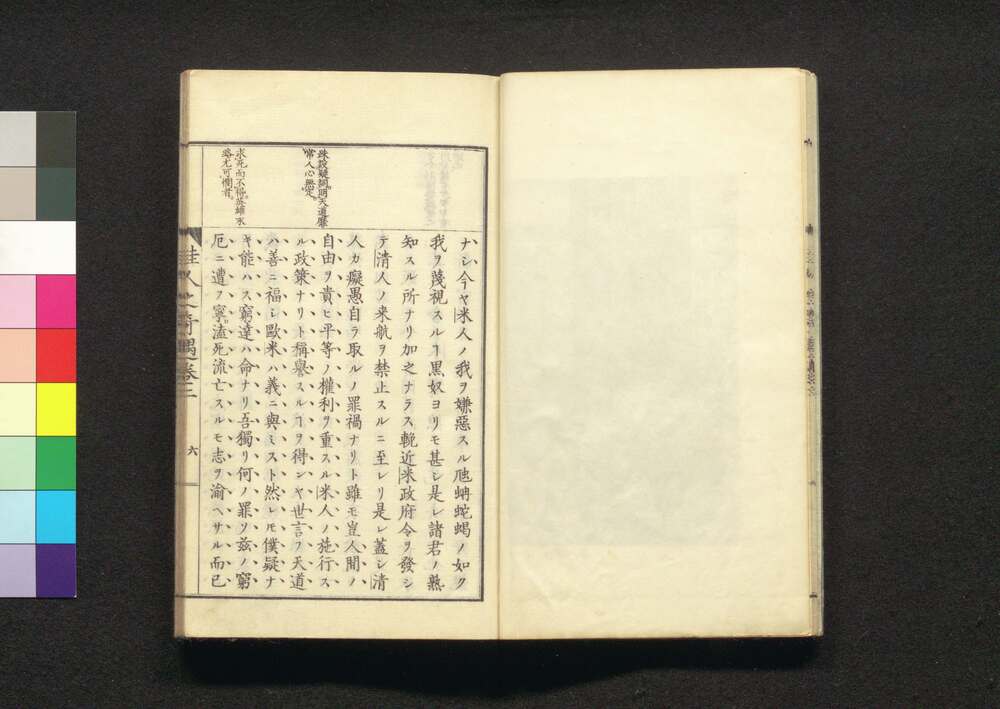 ナシ今ヤ米人ノ我ヲ嫌惡スル虺蚺蛇蝎ノ如ク
我ヲ蔑視スルヿ黒奴ヨリモ甚シ是レ諸君ノ熟
知スル所ナリ加之ナラス輓近米政府令ヲ發シ
テ清人ノ来航ヲ禁止スルニ至レリ是レ蓋シ清
人カ癡愚自ラ取ルノ罪禍ナリト雖モ豈人間ノ
自由ヲ貴ヒ平等ノ權利ヲ重スル米人ノ施行ス
ル政策ナリト稱譽スルヿヲ得ンヤ世言フ天道
ハ善ニ福シ歐米ハ義ニ與ミスト然レモ僕疑ナ
キ能ハス窮達ハ命ナリ吾獨リ何ノ罪ソ茲ノ窮
厄ニ遭フ寧溘死流亡スルモ志ヲ渝ヘサル而已
殊設疑詞。明天道靡
常人心無定。
求死而不得。英雄末
路尤可憫者。
佳人之奇遇卷三
六